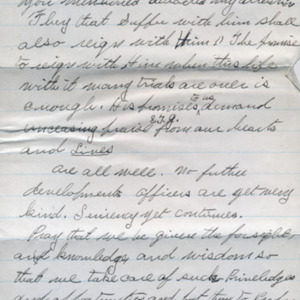 You mentioned
They that suffer with Him shall
also reign with Him. The promise
to reign with Him when this life
with it many trials are over is
enough. His promises to us demand
unceasing praise from our hearts
and lives
are all well. No futher
developments officers are get very
kind. Survey yet continues.
Pray that we be given the
and knowledge and wisdom so
that we take care of such Priveledges
and opportunities and